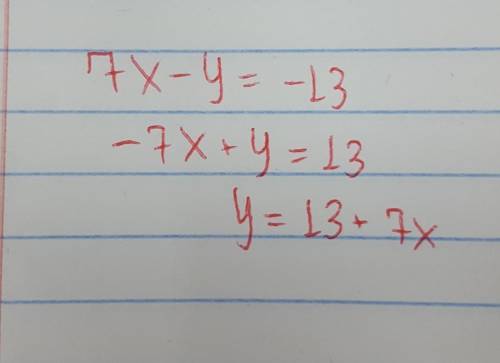 7x - y = -13
-7x + y = 13
y = 13 + 7x